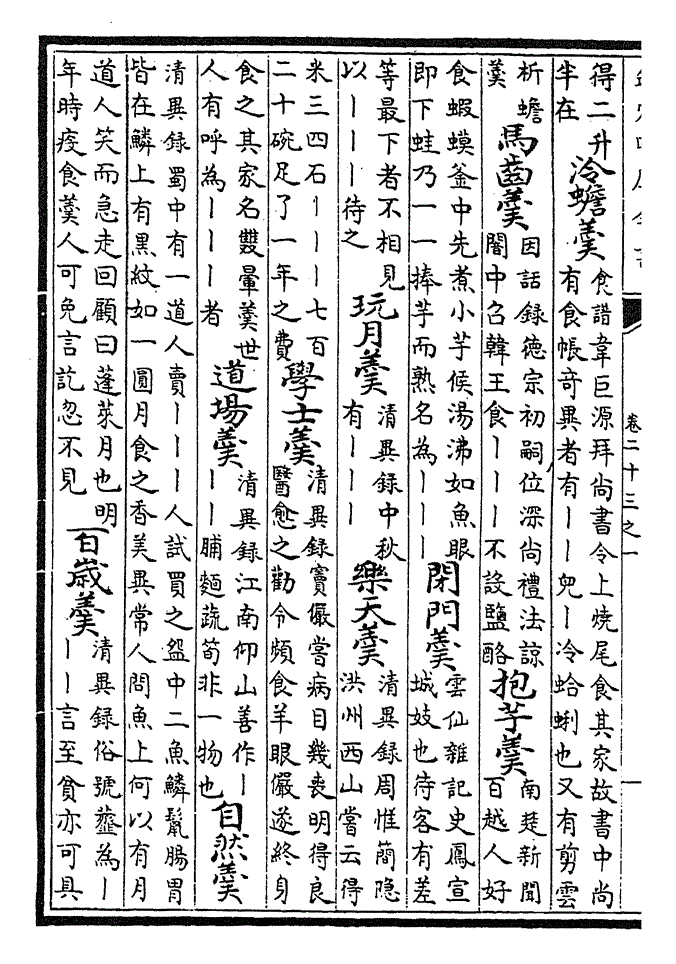 卷二十三之一
得二升
半在
冷蟾羹
食譜韋巨源拜尚書令上燒尾食其家故書中尚
有食帳竒異者有丨丨兜丨冷蛤蜊也又有剪雲
析蟾
羹
馬齒羹
因話錄德宗初嗣位深尚禮法諒
闇中召韓王食丨丨丨不設鹽酪
抱芋羹
南楚新聞
百越人好
食蝦蟆釜中先煮小芋候湯沸如魚眼
即下蛙乃一一捧芋而熟名為丨丨丨
閉門羹
雲仙雜記史鳳宣
城妓也待客有差
等最下者不相見
以丨丨丨待之
玩月羹
清異錄中秋
有丨丨丨
樂天羹
清異錄周惟簡隱
洪州西山嘗云得
米三四石丨丨丨七百
二十碗足了一年之費
學士羹
清異錄竇儼嘗病目幾喪明得良
醫愈之勸令頻食羊眼儼遂終身
食之其家名雙暈羹世
人有呼為丨丨丨者
道場羹
清異錄江南仰山善作丨
丨丨脯麵蔬筍非一物也
自然羹
清異錄蜀中有一道人賣丨丨丨人試買之盌中二魚鱗鬣腸胃
皆在鱗上有黑紋如一圓月食之香美異常人問魚上何以有月
道人笑而急走回顧曰蓬萊月也明
年時疫食羹人可免言訖忽不見
百歲羹
清異錄俗號虀為丨
丨丨言至貧亦可具